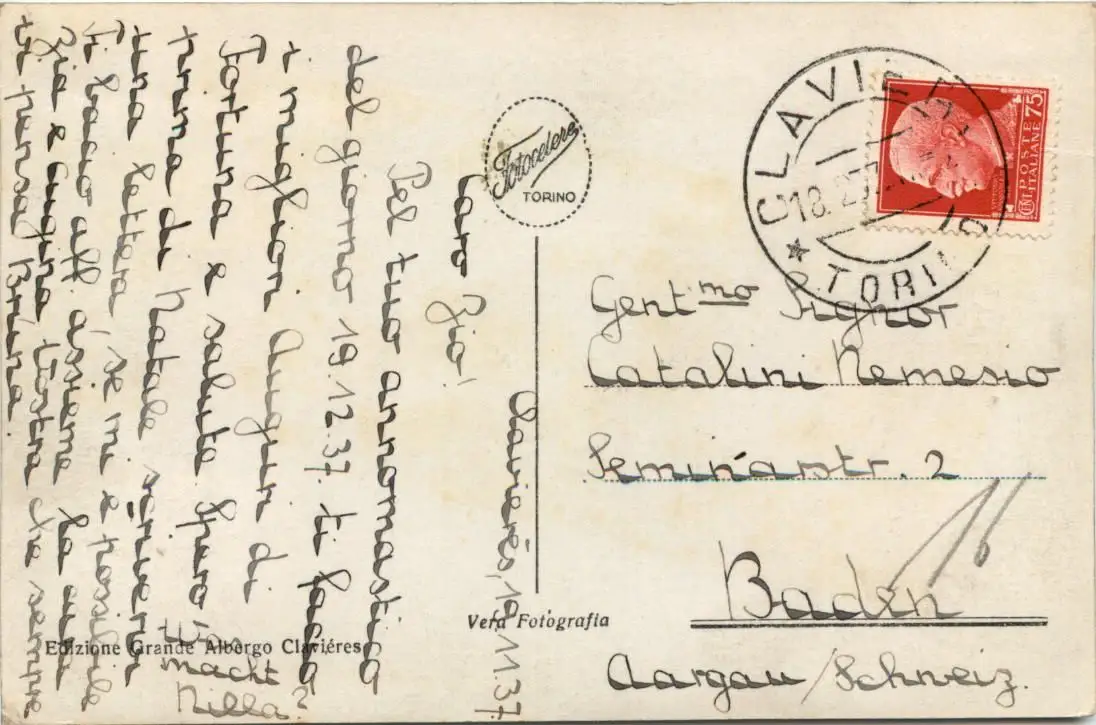 Clavières, 19.11.37
Caro Zio!
Pel tuo annomastico
del giorno 19.12.37. ti faccio
i migliori auguri di
Fortuna e salute. Spero
prima di Natale scriverti
una lettera, se mi è possibile
Ti bacio aff. assieme la cara
Zia e cugina Vostra che sempre
vi pensa! Brüna.
Was
macht
Nilla?
Fotocelere
TORINO
Vera Fotografia
Edizione Grande Albergo Claviéres
CLAVIERES
TORINO
18.
POSTE
ITALIANE
75
Gent.mo Signor
Catalini Nemesio
Seminarstr. 2
Baden
Aargau/Schweiz.